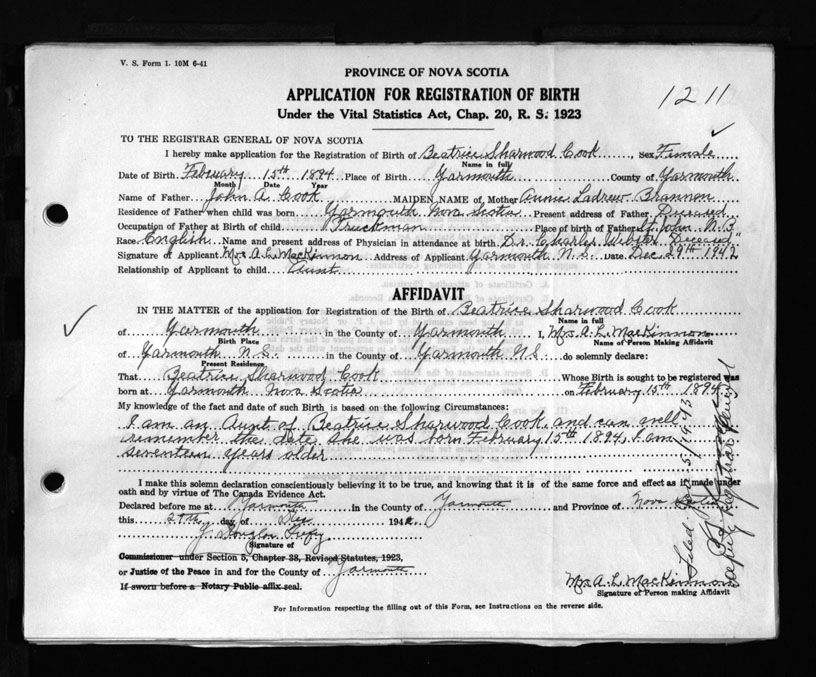 V. S. Form 1. 10M 6-41
PROVINCE OF NOVA SCOTIA
APPLICATION FOR REGISTRATION OF BIRTH
1211
Under the Vital Statistics Act, Chap. 20, R. S. 1923
TO THE REGISTRAR GENERAL OF NOVA SCOTIA
I hereby make application for the Registration of Birth of Beatrice Sharwood Cook, Sex Female
Name in full
Date of Birth February 15th 1894 Place of Birth Yarmouth County of Yarmouth
Month Date Year
Name of Father John A. Cook MAIDEN NAME of Mother Annie Ladrew Brannon
Residence of Father when child was born Yarmouth Nova Scotia Present address of Father Deceased
Occupation of Father at Birth of child Truckman Place of birth of Father St. John N.B
Race English Name and present address of Physician in attendance at birth Dr. Charles Webster Deceased
Signature of Applicant Mrs A. L. MacKinnon Address of Applicant Yarmouth N.S. Date Dec. 29th 1942
Relationship of Applicant to child Aunt
AFFIDAVIT
IN THE MATTER of the application for Registration of the Birth of Beatrice Sharwood Cook
Name in full
of Yarmouth in the County of Yarmouth I, Mrs. A. L. MacKinnon
Birth Place Name of Person Making Affidavit
of Yarmouth N.S. in the County of Yarmouth N.S. do solemnly declare:
Present Residence
That Beatrice Sharwood Cook Whose Birth is sought to be registered was
born at Yarmouth Nova Scotia on February 15th 1894
My knowledge of the fact and date of such Birth is based on the following Circumstances:
I am an Aunt of Beatrice Sharwood Cook and can well
remember the date she was born February 15th 1894, I am
seventeen years older
I make this solemn declaration conscientiously believing it to be true, and knowing that it is of the same force and effect as if made under
oath and by virtue of The Canada Evidence Act.
Declared before me at Yarmouth in the County of Yarmouth and Province of Nova Scotia
this 29th day of Dec 1942
J. Douglas
Signature of
Commissioner under Section 5, Chapter 38, Revised Statutes, 1923,
or Justice of the Peace in and for the County of Yarmouth
If sworn before a Notary Public affix seal.
Mrs. A. L. MacKinnon
Signature of Person making Affidavit
For Information respecting the filling out of this Form, see Instructions on the reverse side.
Deputy Registrar General